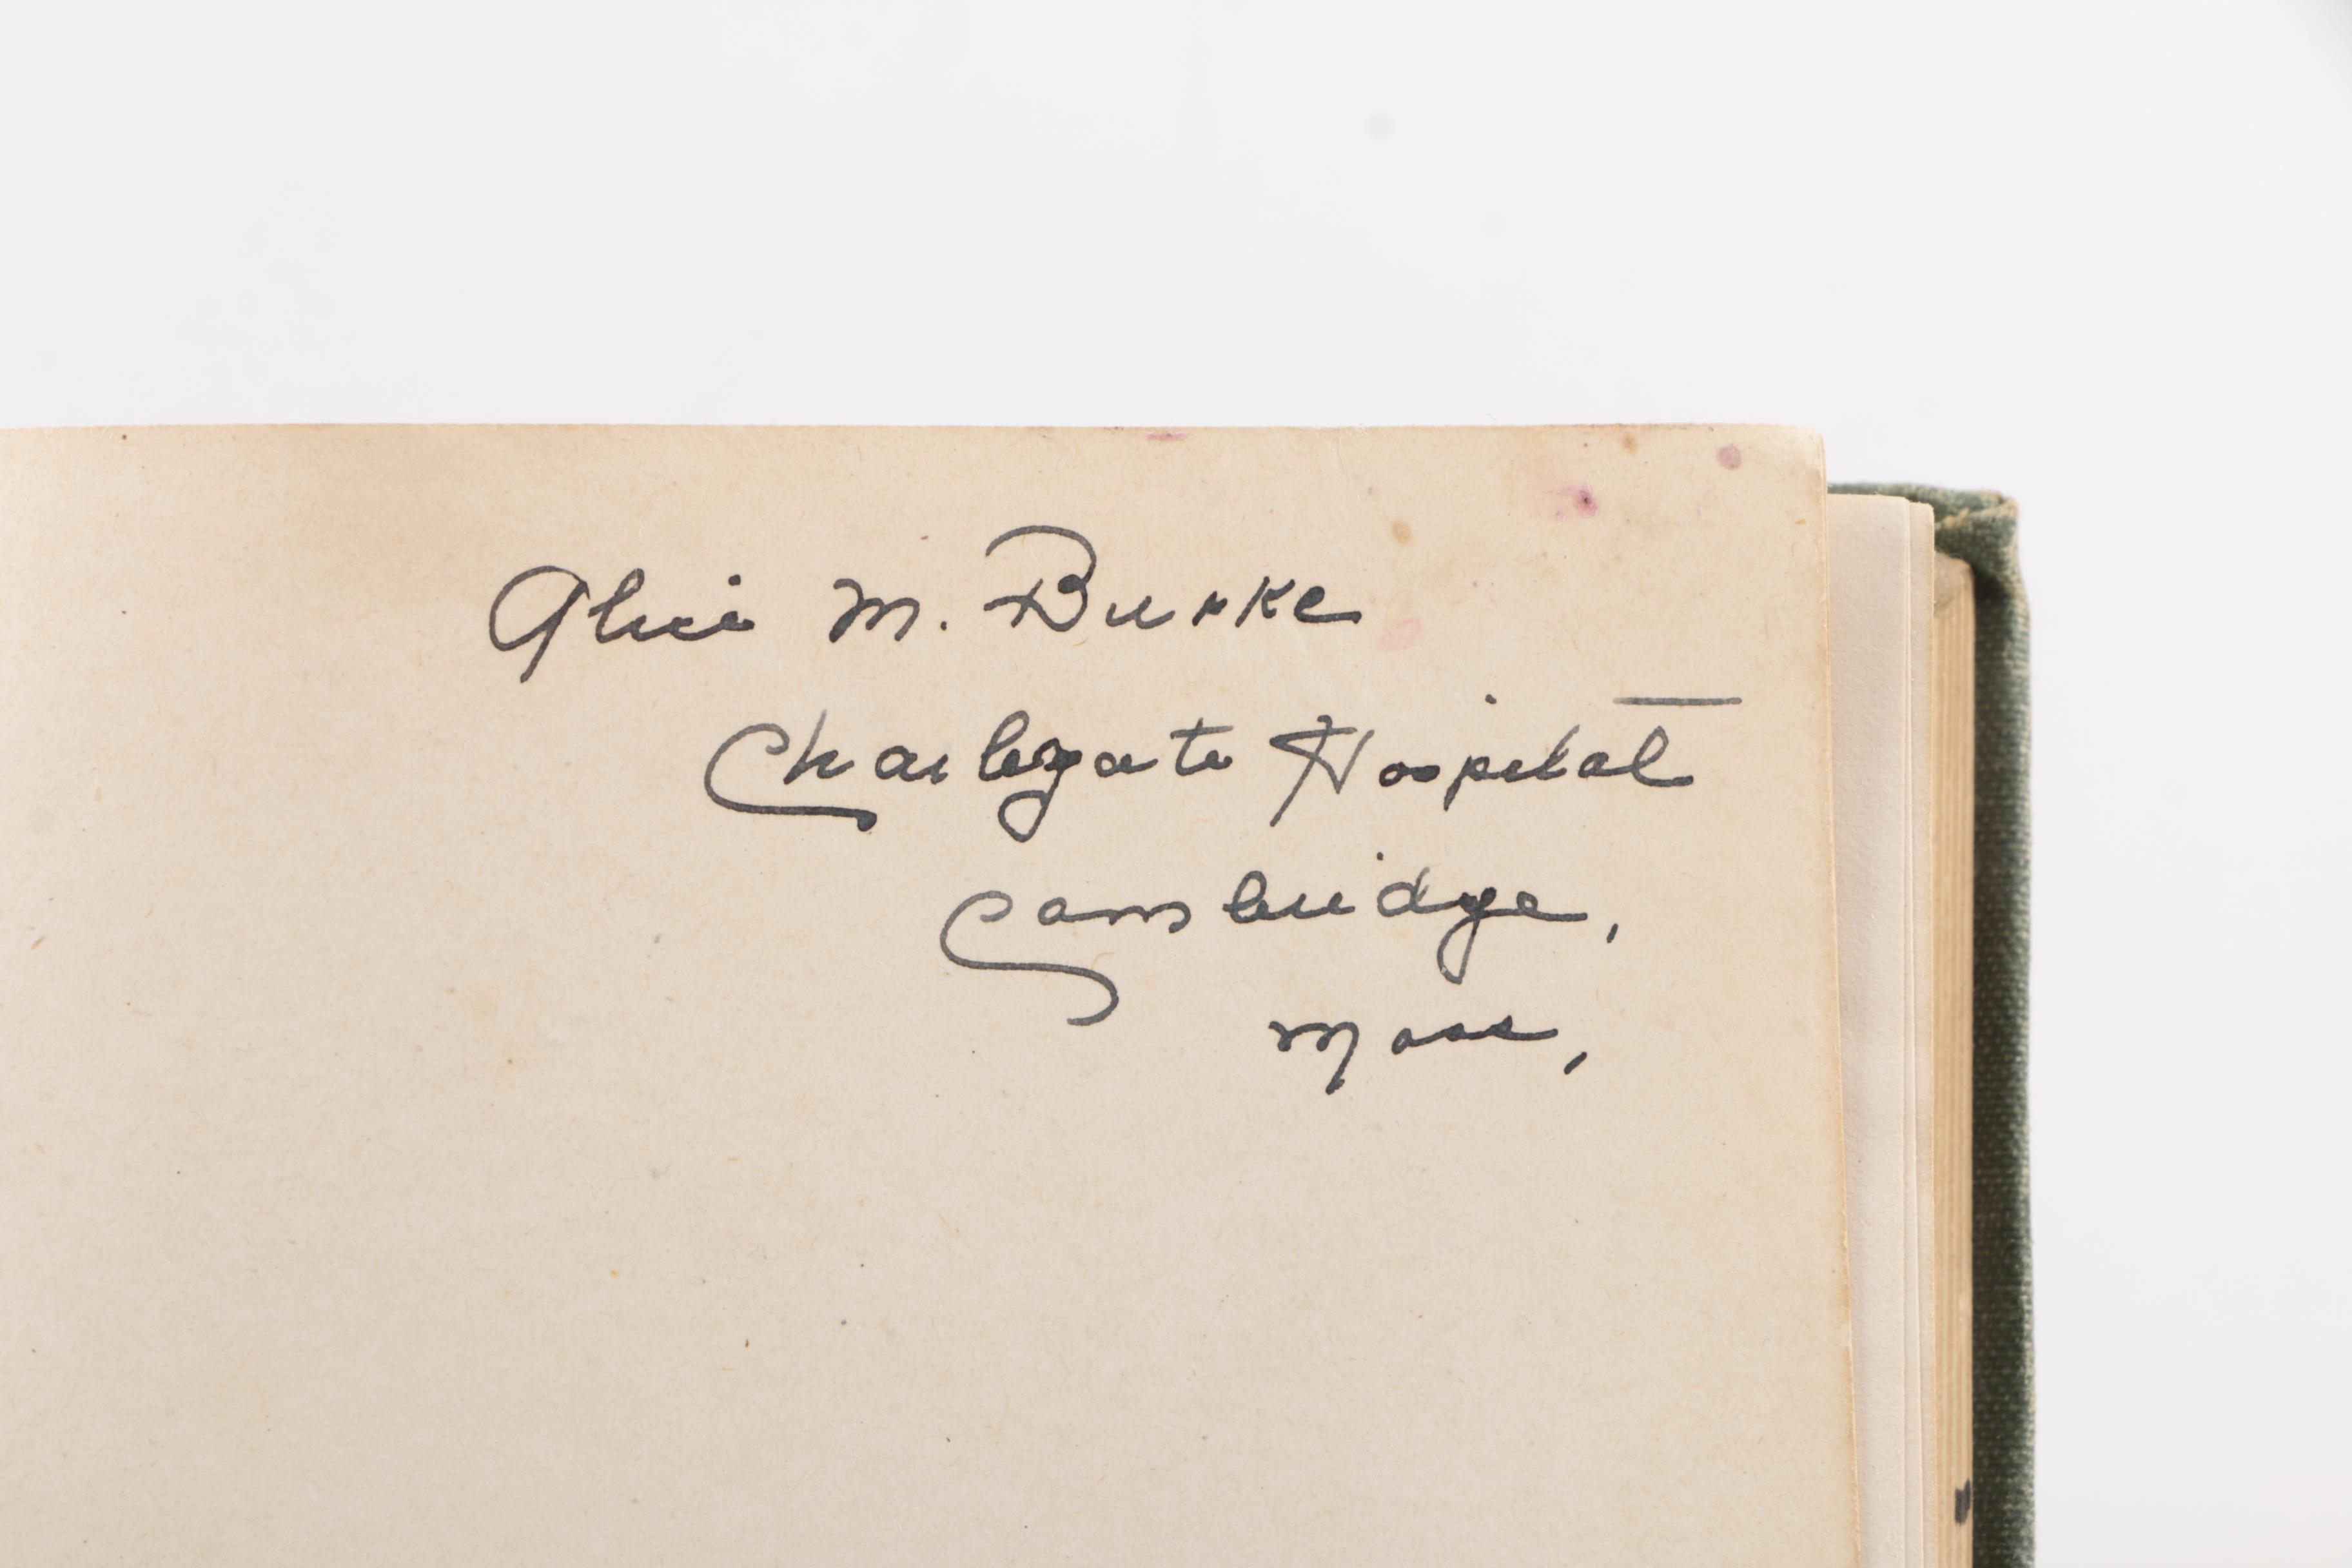 Alice M. Burke
Charlesgate Hospital
Cambridge,
Mass,